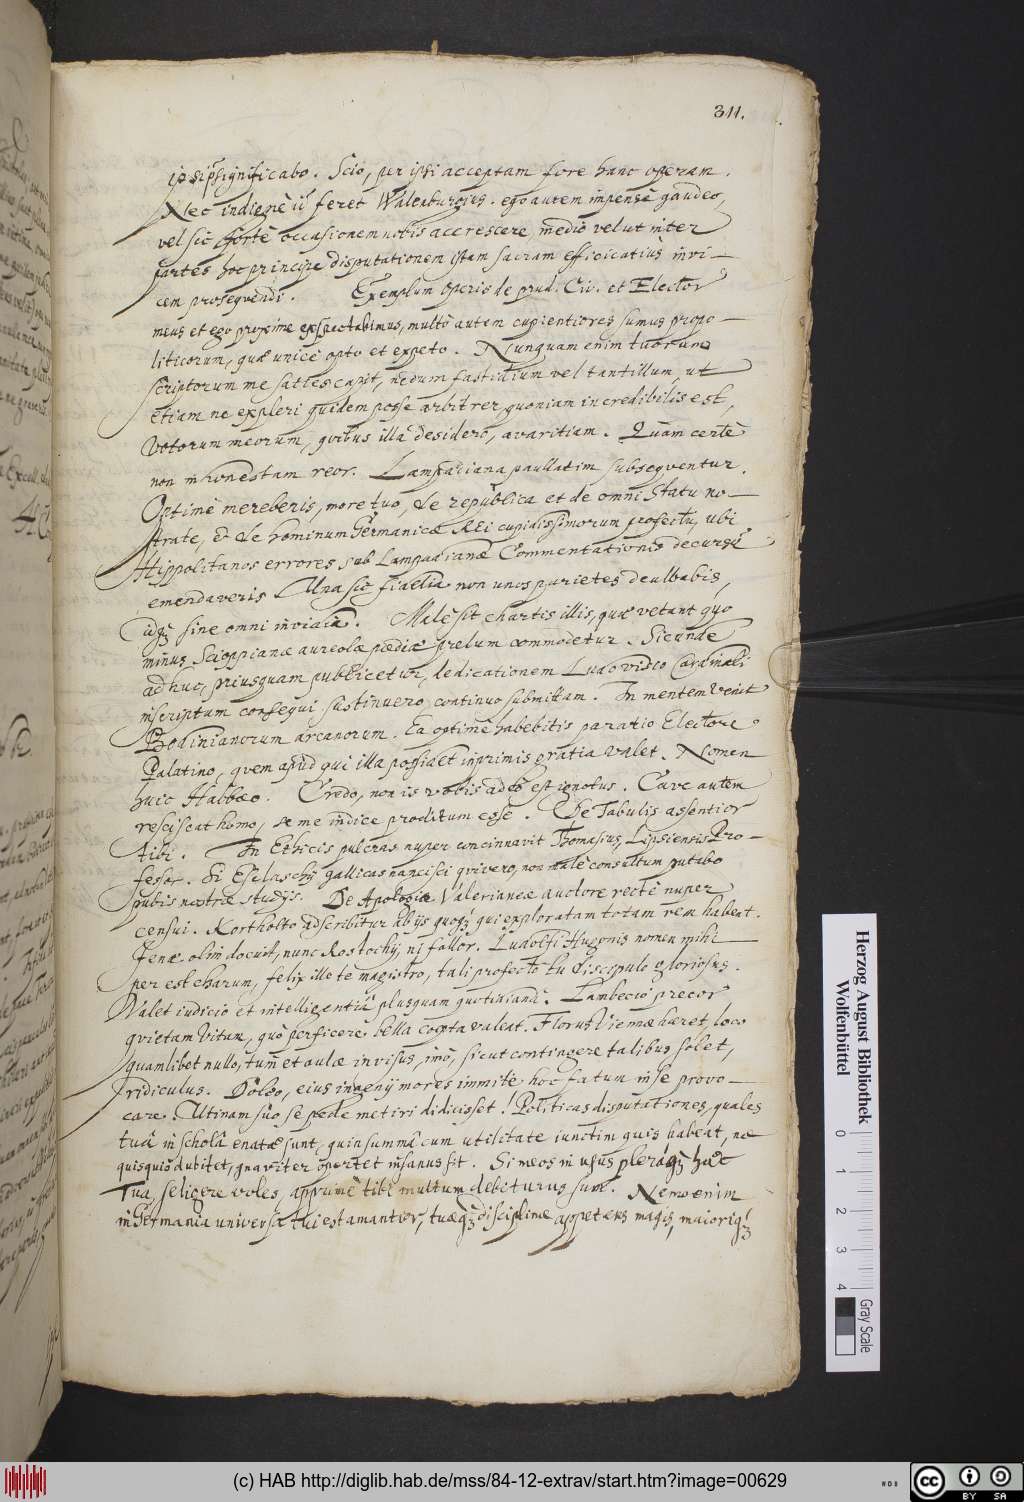 311.
significabo. Scio, per ipsi acceptam fore hanc operam.
Nec indignè ii feret Walenburgius. ego autem impensè gaudeo,
vel sic fortè occasionem nobis accrescere, medio velut inter
partes hoc principe disputationem istam sacram efficiciatiùs invi-
cem prosequendi. Exemplum Operis de prud. Civ. et Elector
meus et ego proxime exspectabimus, multò autem cupientiores sumus propo-
liticorum, quæ unicè opto et expeto. Nunquam enim tuorum
scriptorum me saties capit, nedum fastidium vel tantillum, ut
etiam ne expleri quidem posse arbitrer, quoniam incredibilis est,
votorum meorum, quibus illa desidero, avaritiam. Quam certè
non inhonestam reor. Lampadiana paullatim subsequentur.
Optimè mereberis, more tuo, de republica et de omni statu no-
strate, et de hominum Germanicæ REi cupidissimorum profectu, ubi
Hippolitanos errores sub Lampadianæ Commentationis decursu
emendaveris Una sic fidelia non unos parietes dealbabis,
idq; sine omni invidia. Malè sit chartis illis, quæ vetant quo
minus Scioppianæ aureolæ pædiæ prelum commodetur. Sicunde
adhuc, priusquam publicetur, dedicationem Ludovisio Cardinali
inscriptum consequi sustinuero, continuo submittam. In mentem venit
Bodinianorum arcanorum. Ea optimè habebitis paratio Electore
Palatino, quem apud qui illa possidet inprimis gratia valet. Nomen
huic Habbæo. Credo, non is vobis adeò est ignotus. Cave autem
resciscat homo, se me indice proditum esse. De Tabulis assentior
tibi. In Ethicis pulcras nuper concinnavit Thomasius, Lipsiensis Pro-
fessor. Si Esclaschÿ gallicas nancisci quivero, non malè consultum putabo
pubis nostræ studÿs. De Apologiæ Valerianeæ auctore rectè nuper
censui. Kortholto adscribitur ab ÿs quoq; qui exploratam totam rem habent.
Jenæ olim docuit, nunc Rostochÿ, ni fallor. Ludolfi Hugonis nomen mihi
per est charum, felix ille te magistro, tali profecto tu discipulo gloriosus.
Valet iudicio et intelligentiâ plusquam quotidianâ. Lambecio precor
quietam vitam, quò perficere bella coepta valeat. Florus Viennæ hæret, loco
quamlibet nullo, tum et aulæ invisus, imò, sicut contingere talibus solet,
ridiculus. Doleo, eius ingenÿ mores immitè hoc fatum in se provo-
care. Utinam suo se pede metiri didicisset! Politicas disputationes, quales
tuâ in scholâ enatæ sunt, quin summâ cum utilitate iunctim quis habeat, ne
quisquis dubitet, gnaviter oportet insanus sit. Si meos in usus pleraq; hæc
Tua, seligere voles, apprimè tibi multum debiturus sum. Nemo enim
in Germania universa tui est amantior, tuæq; disciplinæ appetens magis, maioriq;
Herzog August Bibliothek
Wolfenbüttel
0 1 2 3 4
Gray Scale
(c) HAB http://diglib.hab.de/mss/84-12-extrav/start.htm?image=00629
cc BY SA